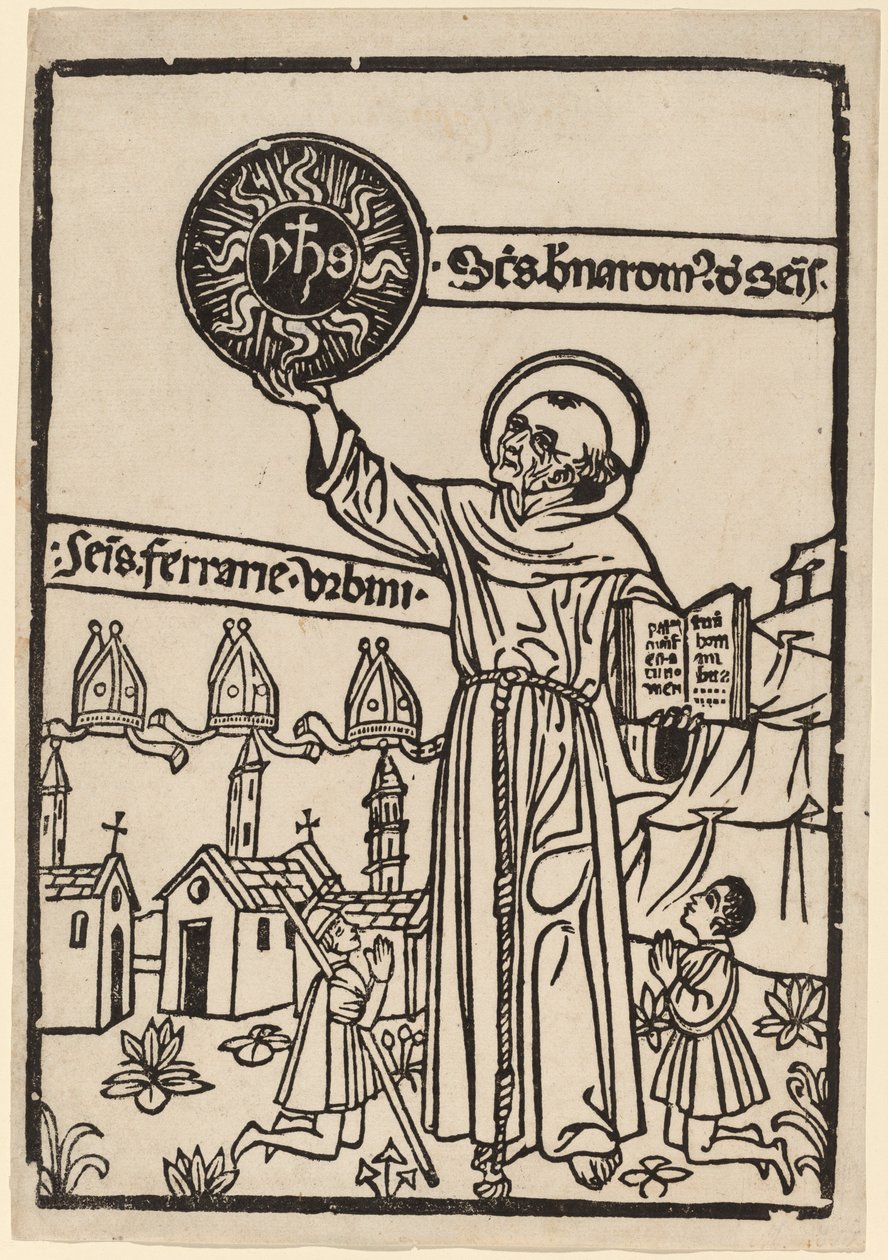 yhs
·Scs.bnarom?d seis·
·seis.ferrarie·vrbini·
pat
manif
esta
ui no
men
tuu
hom
ini
bus